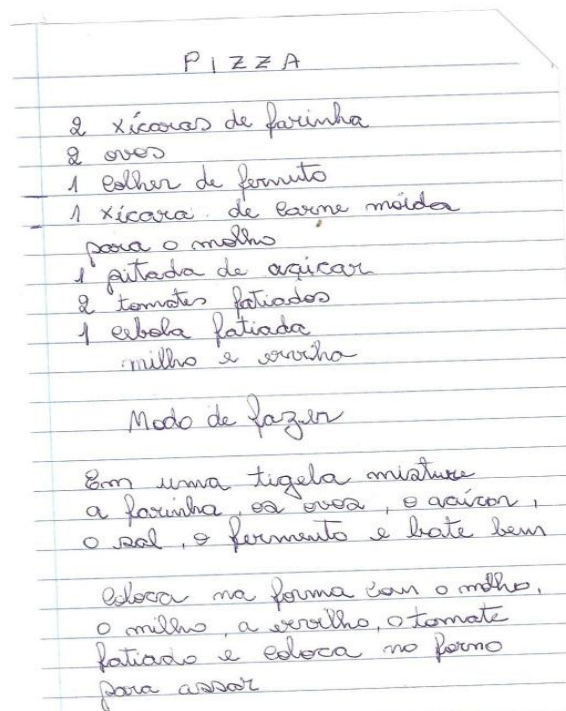 PIZZA
2 xícaras de farinha
2 ovos
1 colher de fermuto
1 xícara de carne móida
para o molho
1 pitada de açúcar
2 tomates fatiados
1 cebola fatiada
milho e ervilha
Modo de fazer
Em uma tigela misture
a farinha, os ovos, o açúcar,
o sal, o fermento e bate bem
coloca na forma com o molho,
o milho, a ervilho, o tomate
fatiado e coloca no forno
para assar